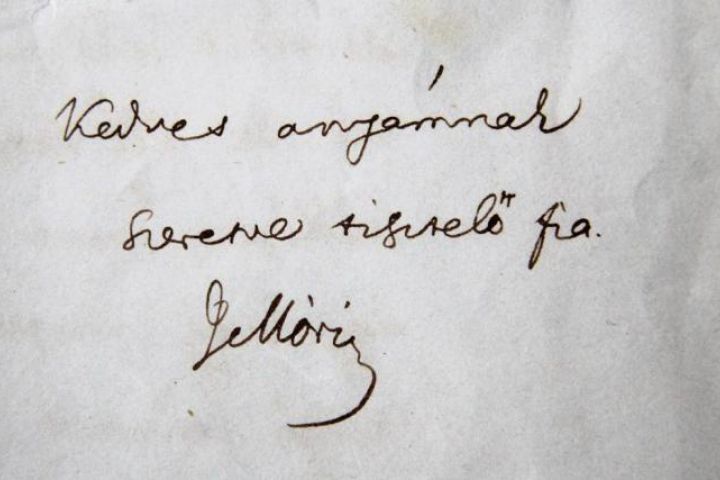 Kedves anyámnak
szeretve tisztelő fia.
JcMóric